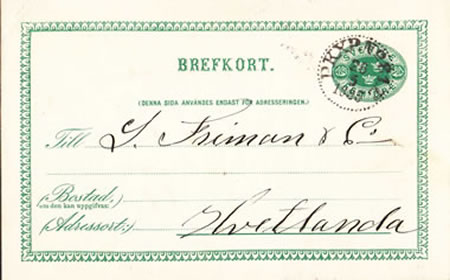 BREFKORT.
(DENNA SIDA ANVÄNDES ENDAST FÖR ADRESSERINGEN.)
Till S. Friman & Co
(Bostad:
om den kan uppgifvas)
(Adressort:) Hvetlanda